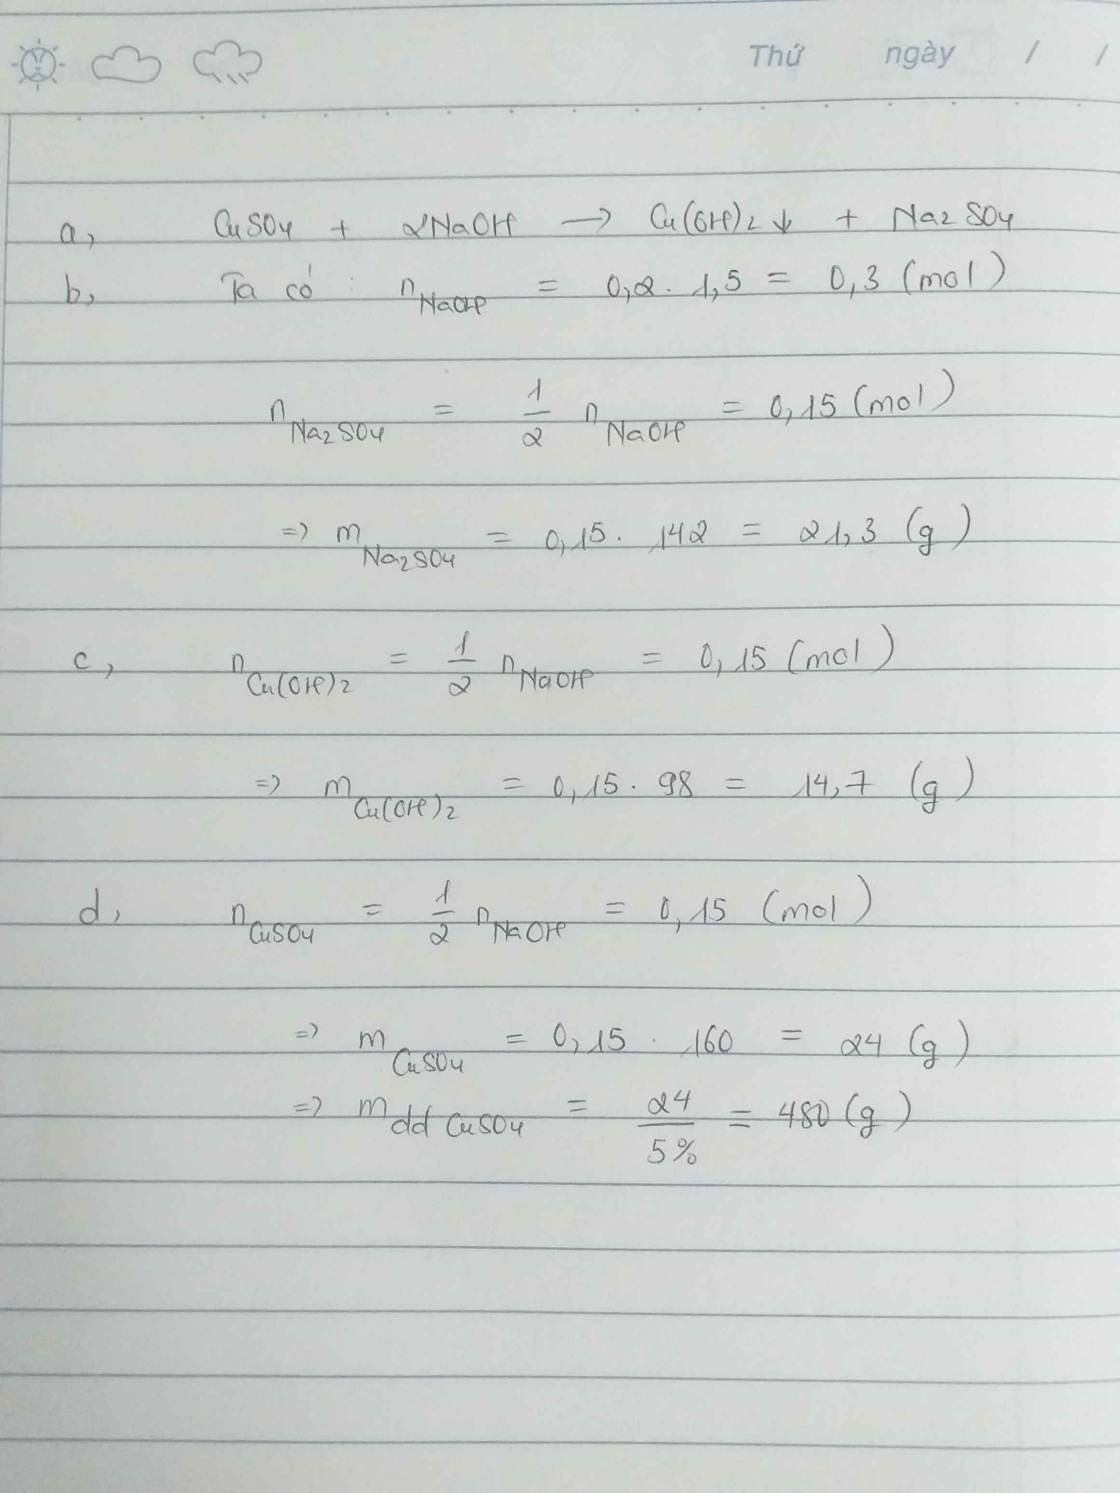 Thứ ngày / /
a, CuSO4 + 2NaOH → Cu(OH)2↓ + Na2SO4
b, Ta có: nNaOH = 0,2 . 1,5 = 0,3 (mol)
nNa2SO4 = 1/2 nNaOH = 0,15 (mol)
=> mNa2SO4 = 0,15 . 142 = 21,3 (g)
c, nCu(OH)2 = 1/2 nNaOH = 0,15 (mol)
=> mCu(OH)2 = 0,15 . 98 = 14,7 (g)
d, nCuSO4 = 1/2 nNaOH = 0,15 (mol)
=> mCuSO4 = 0,15 . 160 = 24 (g)
=> mdd CuSO4 = 24/5% = 480 (g)